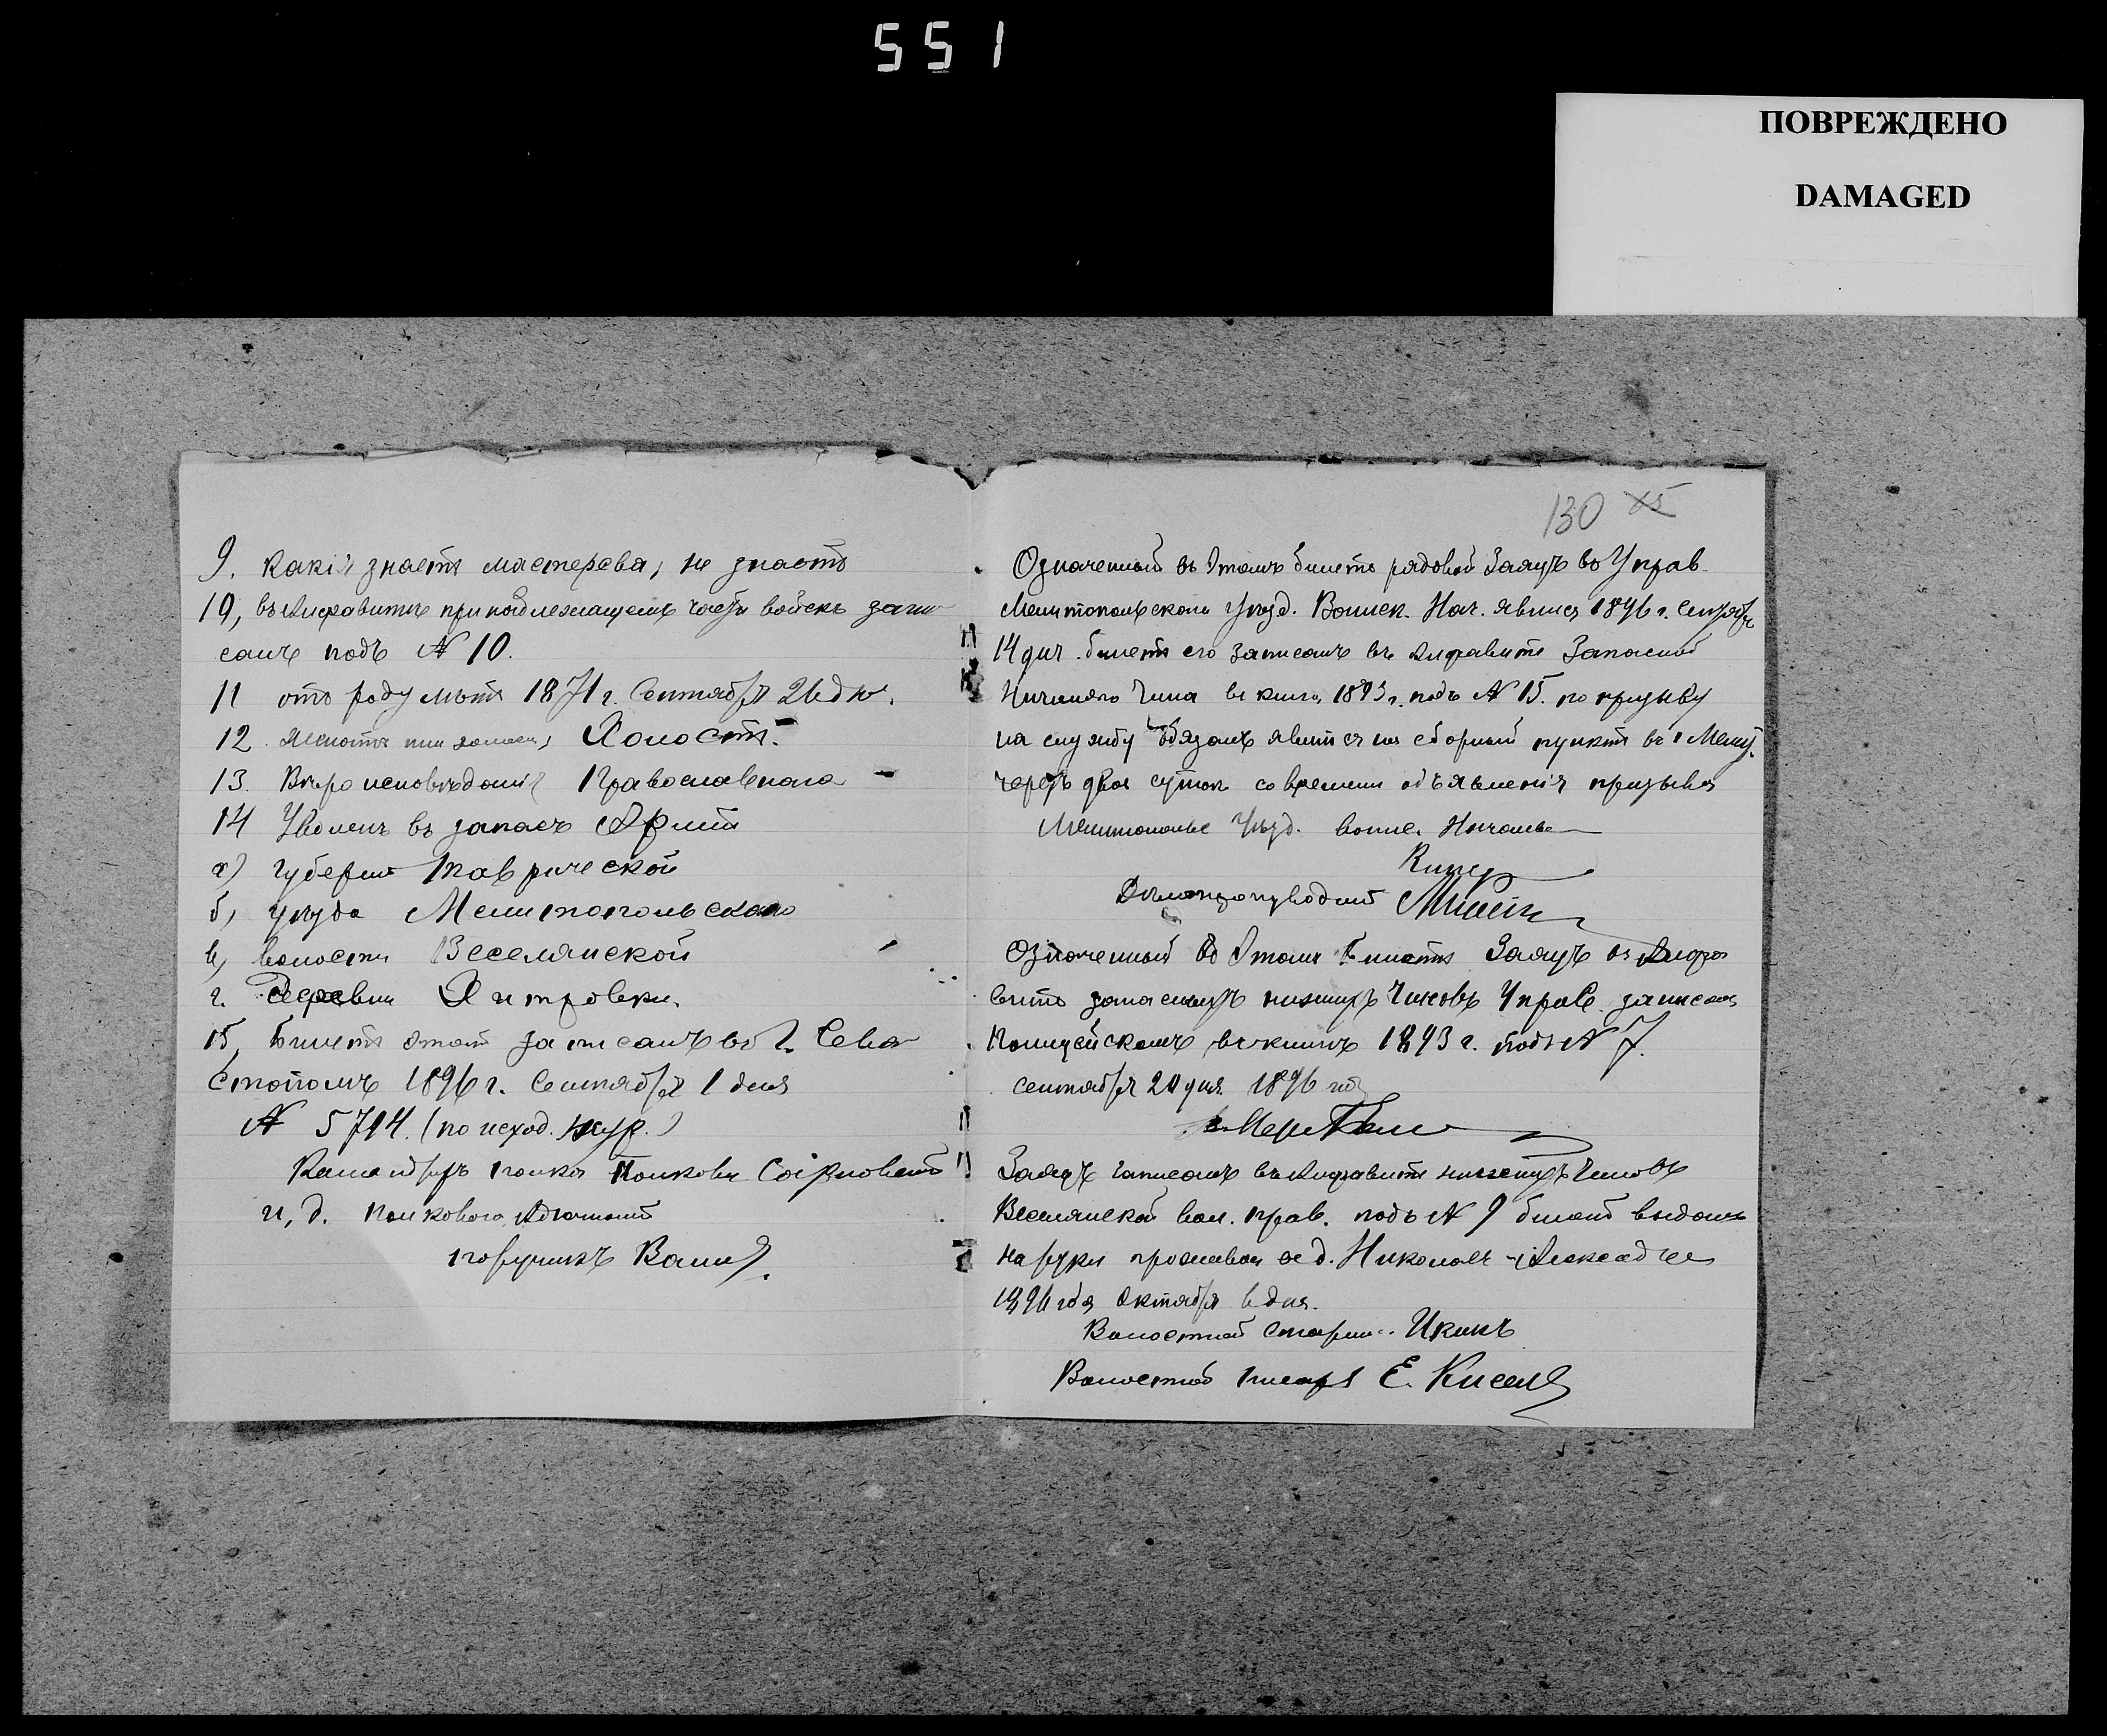 551
ПОВРЕЖДЕНО
DAMAGED
9. Какія знаетъ мастерсва, не знаетъ
10, въ Алфавитѣ принадлежащемъ части войскъ запи
санъ подъ № 10.
11 отъ роду лѣтъ 1871 г. Сентября 26 дн.
12. Женатъ или холостъ, Холостъ.
13. Вѣроисповѣданія Православнаго
14 Уволенъ въ запасъ Арміи
а) Губерніи Таврической
б, уѣзда Мелитопольскаго
в, волости Веселянской
г. Деревни
15, Билетъ этотъ записанъ во г. Сева
стополѣ 1896 г. Сентября 1 дня
№ 5794. (по исход. жур.)
Командиръ полка Полковн.
и, д. Полковаго Адъютанта
поручикъ
130 85
Означенный въ этомъ билетѣ рядовой Заяцъ во Управ.
Мелитопольскаго Уѣзд. Воинск. Нач. явился 1896 г. Сентября
14 дня. билетъ его записанъ въ Алфавитѣ Запасной
Нижняго Чина въ книгѣ 1893 г. подъ № 15. по призыву
на службу обязанъ явится на сборный пунктъ въ г Мелит.
черезъ двоя суток со времени объявленія призыва
Мелитопольс Уѣзд. воинс. Начальн
Дѣлопроизводит
Означенный во этомъ билетѣ Заяцъ въ Алфа
витѣ запасныхъ нижнихъ Чиновъ Управ. записанъ
Полицейскомъ въ книгѣ 1893 г. подъ № 7.
сентября 20 дня 1896 года
Заяцъ записанъ въ Алфавитѣ нижнихъ Чиновъ
Веселянской вол. прав. подъ № 9 билетъ выданъ
на руки проживан
1896 года Октября 6 дня.
Волостной Старши. Икикъ
Волостной писарь Е. Кисел